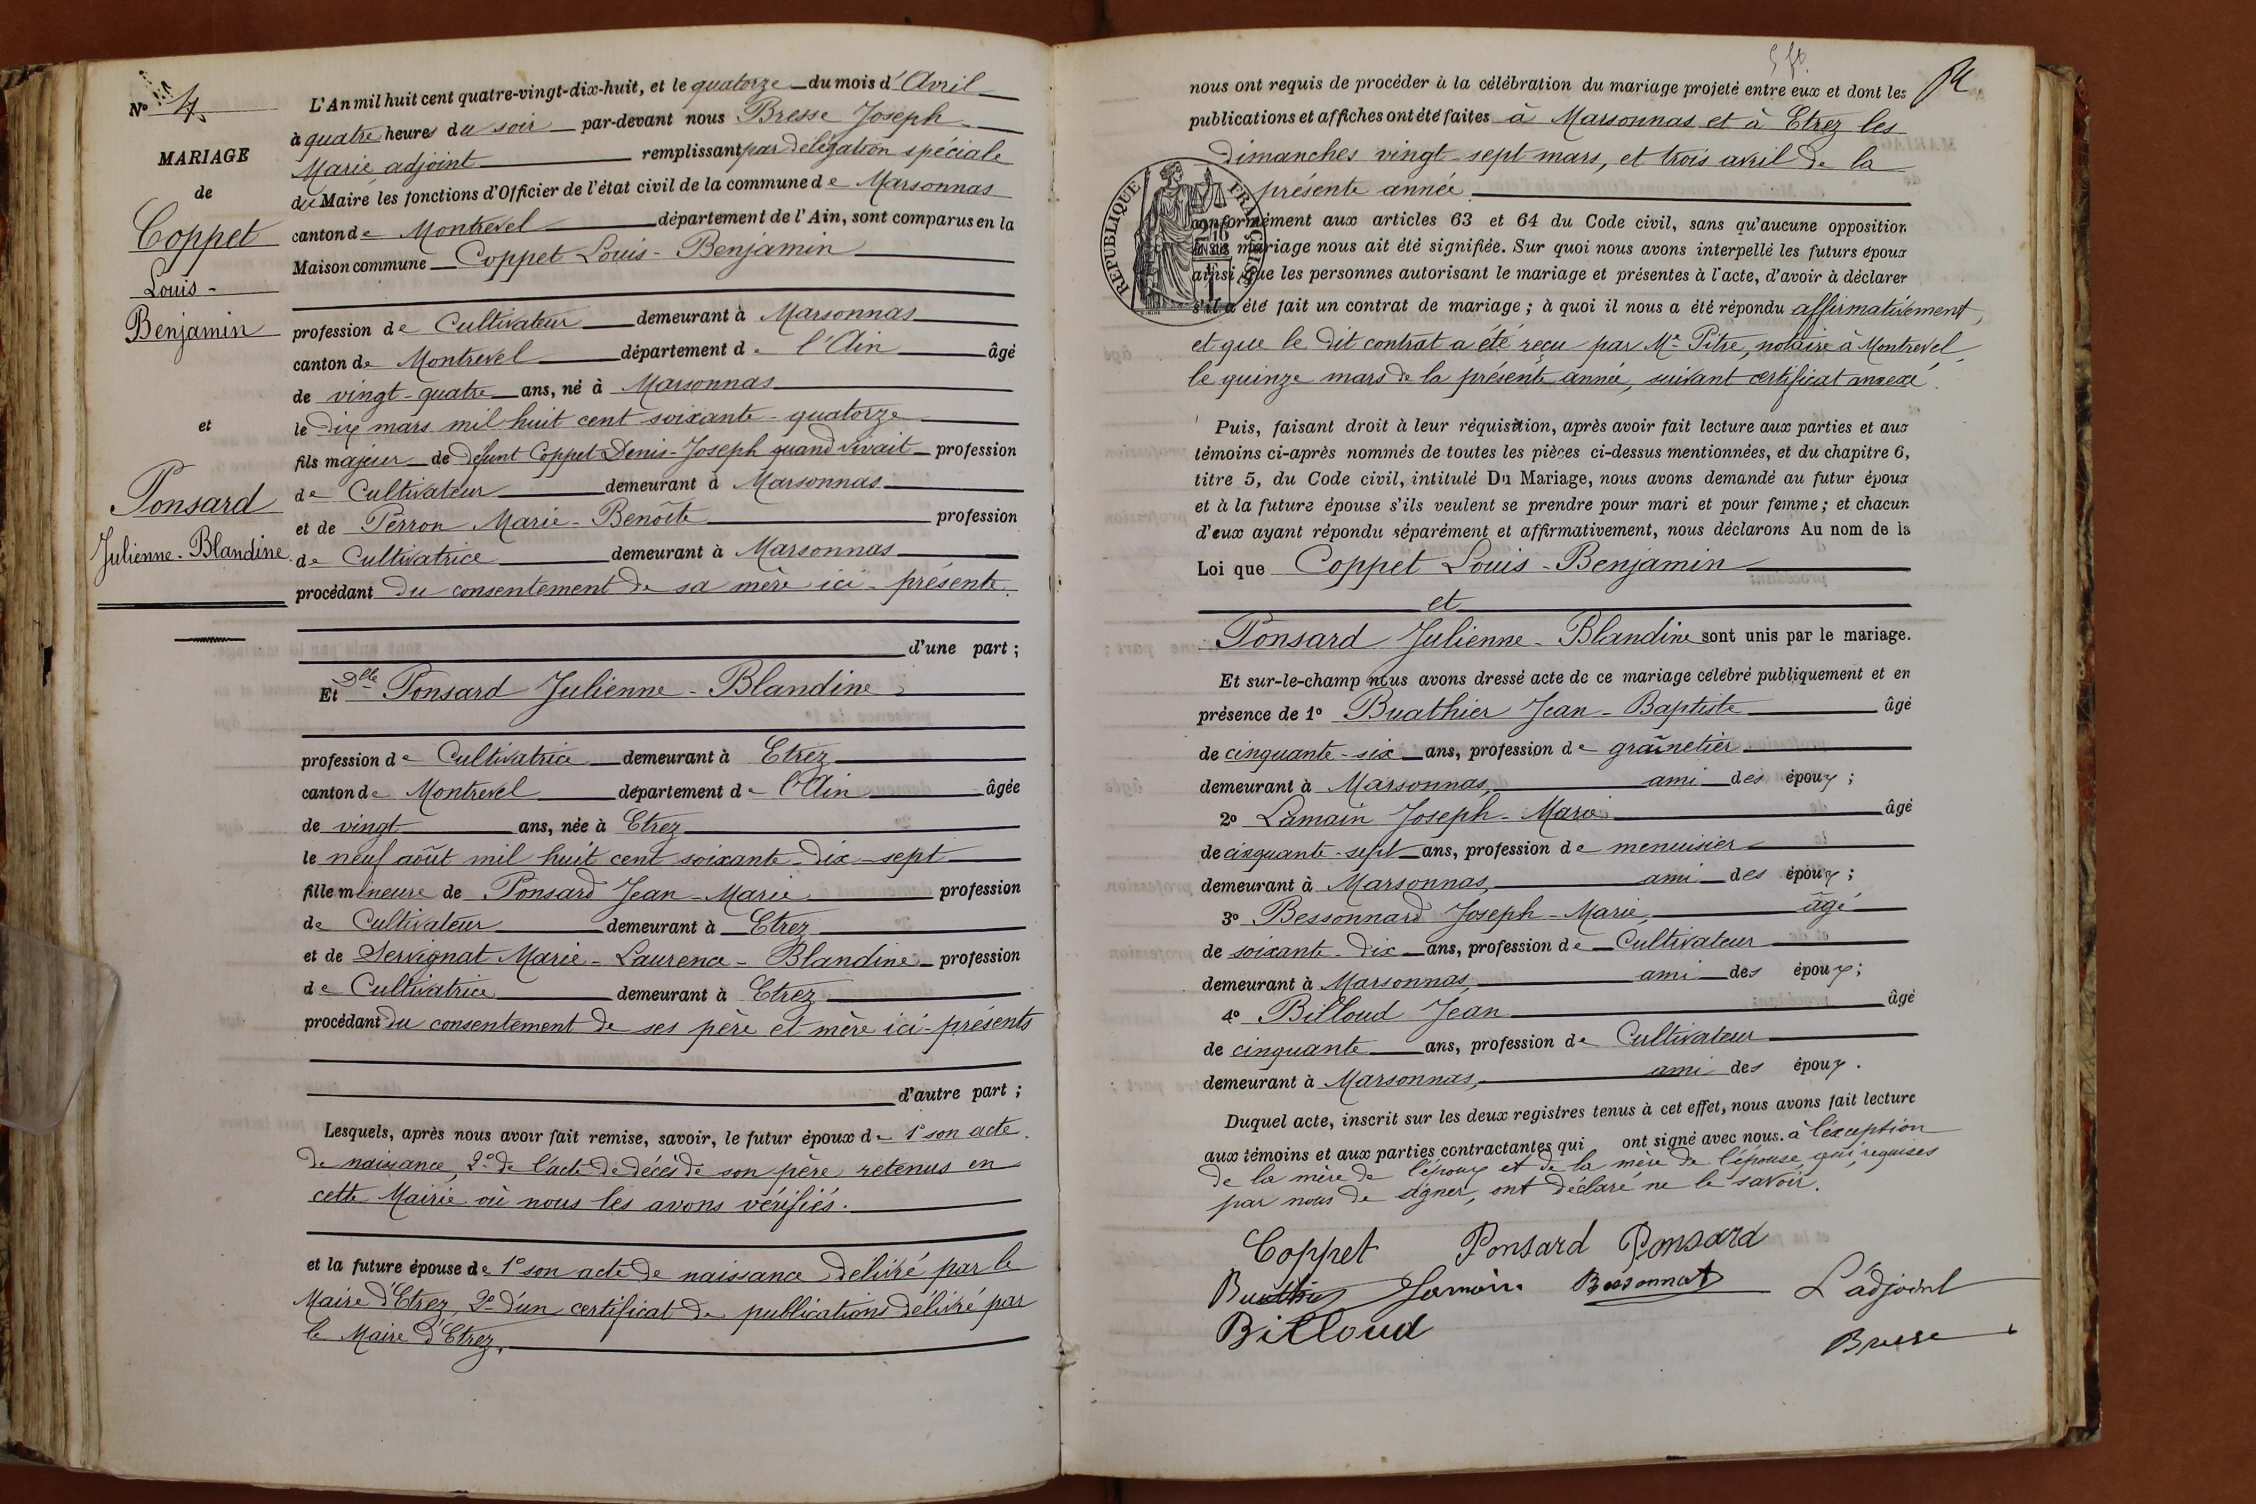 N° 4
MARIAGE
de
Coppet
Louis-
Benjamin
et
Ponsard
Julienne-Blandine
L'An mil huit cent quatre-vingt-dix-huit, et le quatorze du mois d'Avril
à quatre heures du soir par-devant nous Bresse Joseph
Marie, adjoint remplissant par délégation spéciale
du Maire les fonctions d'Officier de l'état civil de la commune de Marsonnas
canton de Montrevel département de l'Ain, sont comparus en la
Maison commune Coppet Louis-Benjamin
profession de Cultivateur demeurant à Marsonnas
canton de Montrevel département de l'Ain âgé
de vingt-quatre ans, né à Marsonnas
le dix mars mil huit cent soixante-quatorze
fils majeur de défunt Coppet Denis-Joseph quand vivait profession
de Cultivateur demeurant à Marsonnas
et de Perron Marie-Benoîte profession
de Cultivatrice demeurant à Marsonnas
procédant du consentement de sa mère ici-présente.
d'une part ;
Et Dlle Ponsard Julienne-Blandine
profession de Cultivatrice demeurant à Etrez
canton de Montrevel département de l'Ain âgée
de vingt ans, née à Etrez
le neuf août mil huit cent soixante-dix-sept
fille mineure de Ponsard Jean-Marie profession
de Cultivateur demeurant à Etrez
et de Servignat Marie-Laurence-Blandine profession
de Cultivatrice demeurant à Etrez
procédant du consentement de ses père et mère ici-présents
d'autre part ;
Lesquels, après nous avoir fait remise, savoir, le futur époux de 1° son acte
de naissance, 2° de l'acte de décès de son père retenus en
cette Mairie où nous les avons vérifiés.
et la future épouse de 1° son acte de naissance délivré par le
Maire d'Etrez, 2° d'un certificat de publications délivré par
le Maire d'Etrez.
nous ont requis de procéder à la célébration du mariage projeté entre eux et dont les
publications et affiches ont été faites à Marsonnas et à Etrez les
dimanches vingt-sept mars, et trois avril de la
présente année
RÉPUBLIQUE FRANÇAISE
conformément aux articles 63 et 64 du Code civil, sans qu'aucune opposition
mariage nous ait été signifiée. Sur quoi nous avons interpellé les futurs époux
ainsi que les personnes autorisant le mariage et présentes à l'acte, d'avoir à déclarer
s'il a été fait un contrat de mariage ; à quoi il nous a été répondu affirmativement,
et que le dit contrat a été reçu par Me Pitre, notaire à Montrevel,
le quinze mars de la présente année, suivant certificat annexé.
Puis, faisant droit à leur réquisition, après avoir fait lecture aux parties et aux
témoins ci-après nommés de toutes les pièces ci-dessus mentionnées, et du chapitre 6,
titre 5, du Code civil, intitulé Du Mariage, nous avons demandé au futur époux
et à la future épouse s'ils veulent se prendre pour mari et pour femme ; et chacun
d'eux ayant répondu séparément et affirmativement, nous déclarons Au nom de la
Loi que Coppet Louis-Benjamin
et
Ponsard Julienne-Blandine sont unis par le mariage.
Et sur-le-champ nous avons dressé acte de ce mariage célébré publiquement et en
présence de 1° Buathier Jean-Baptiste âgé
de cinquante-six ans, profession de grainetier
demeurant à Marsonnas, ami des époux ;
2° Lamain Joseph-Marie âgé
de cinquante-sept ans, profession de menuisier
demeurant à Marsonnas, ami des époux ;
3° Bessonnard Joseph-Marie, âgé
de soixante-dix ans, profession de Cultivateur
demeurant à Marsonnas, ami des époux ;
4° Billoud Jean âgé
de cinquante ans, profession de Cultivateur
demeurant à Marsonnas, ami des époux.
Duquel acte, inscrit sur les deux registres tenus à cet effet, nous avons fait lecture
aux témoins et aux parties contractantes qui ont signé avec nous. à l'exception
de la mère de l'époux et de la mère de l'épouse qui, requises
par nous de signer, ont déclaré ne le savoir.
Coppet Ponsard Ponsard
Buathier Lamain Bessonnard L'adjoint
Billoud
Bresse